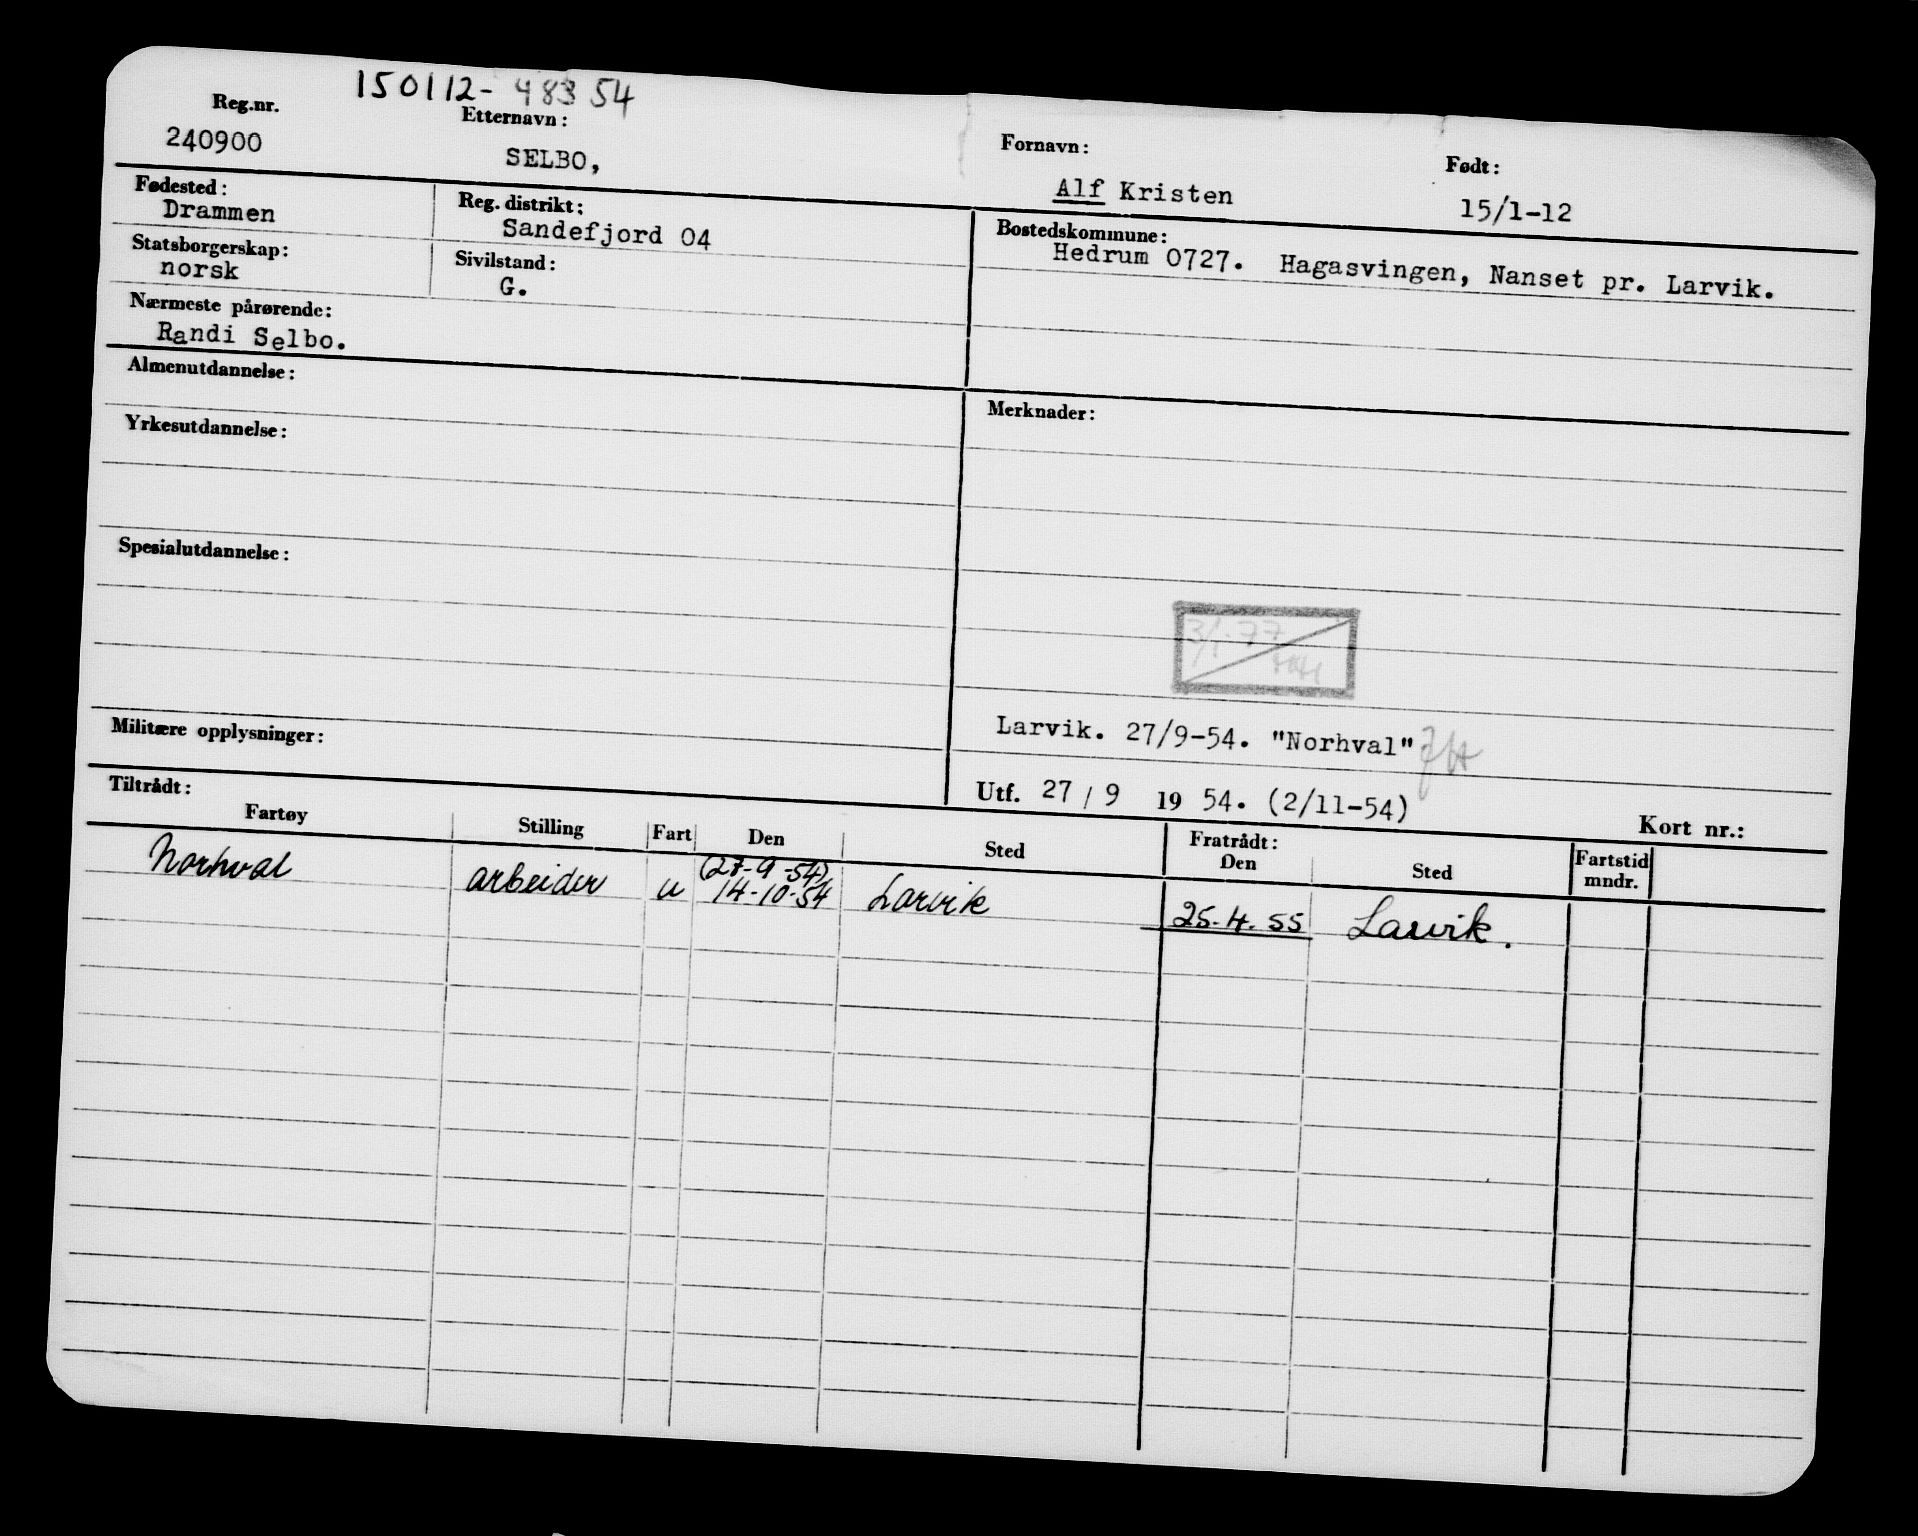 150112-48354
Reg.nr. Etternavn: Fornavn: Født:
240900 SELBO, Alf Kristen 15/1-12
Fødested: Reg. distrikt: Bostedskommune:
Drammen Sandefjord 04 Hedrum 0727. Hagasvingen, Nanset pr. Larvik.
Statsborgerskap: Sivilstand:
norsk G.
Nærmeste pårørende:
Randi Selbo.
Almenutdannelse: Merknader:
Yrkesutdannelse:
Spesialutdannelse:
3/1-77
Militære opplysninger: Larvik. 27/9-54. "Norhval"
Utf. 27 / 9 19 54. (2/11-54)
Tiltrådt: Kort nr.:
Fartøy Stilling Fart Den Sted Fratrådt: Den Sted Fartstid mndr.
(27-9-54)
Norhval arbeider u 14-10-54 Larvik 25.4.55 Larvik.